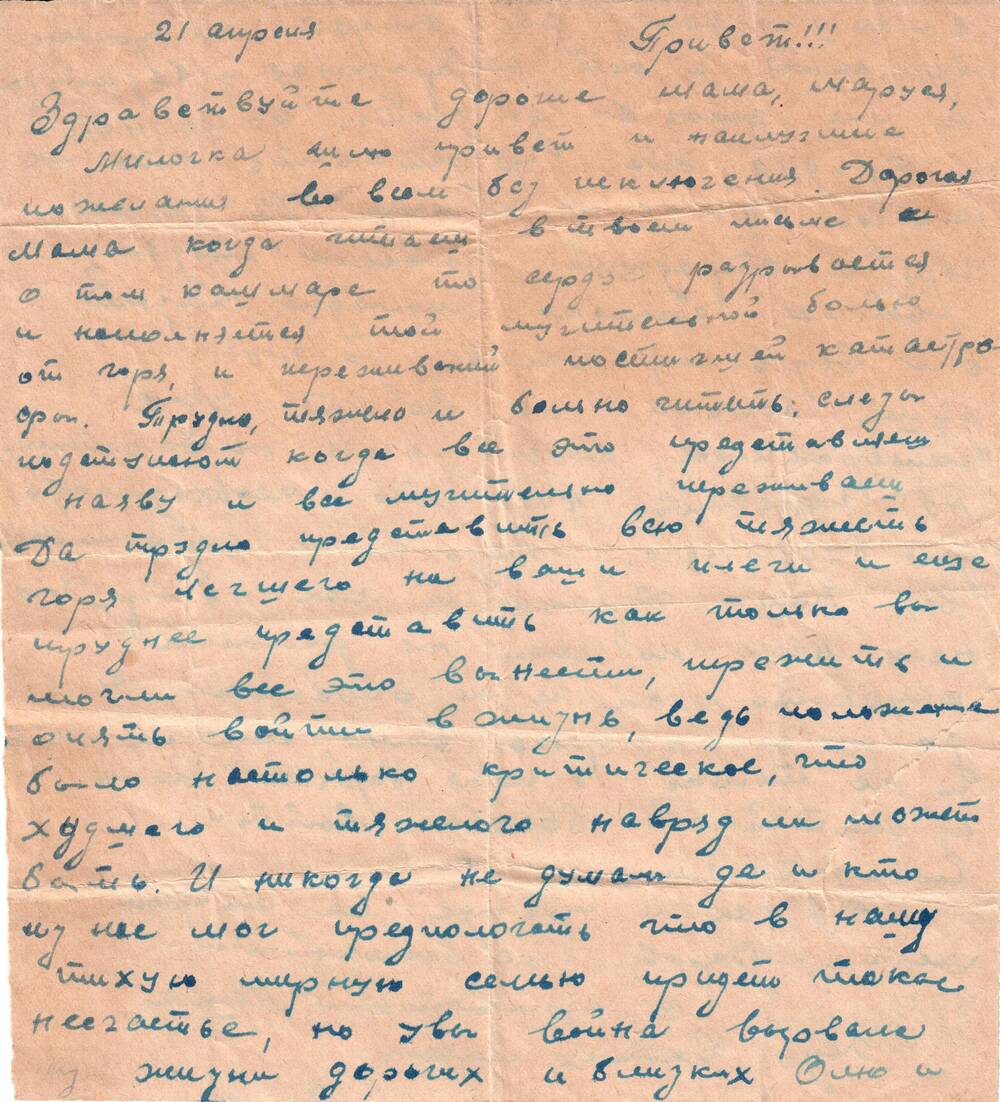 21 апреля Привет!!!
Здравствуйте дорогие мама, Маруся,
Милочка шлю привет и наилучшие
пожелания во всем без исключения. Дорогая
Мама когда читаеш в твоем письме
о том кашмаре то сердце разрывается
и наполняется той мучительной болью
от горя, и переживаний постигшей катастро
фы. Трудно, тяжело и больно читать, слезы
подступают когда все это представляеш
наяву и все мучительно переживаеш
Да трудно представить всю тяжесть
горя легшего на ваши плечи и еще
труднее представить как только вы
могли все это вынести, пережить и
опять войти в жизнь, ведь положение
было настолько критическое, что
худшего и тяжелого навряд ли может
быть. И никогда не думали да и кто
из нас мог предпологать что в нашу
тихую мирную семью придет такое
несчастье, но увы война вырвала
из жизни дорогих и близких Олю и